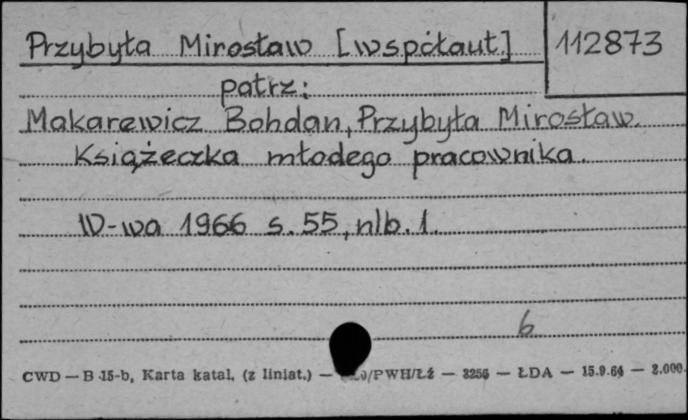 Przybyła Mirosław [współaut.] 112873
patrz:
Makarewicz Bohdan, Przybyła Mirosław.
Książeczka młodego pracownika.
W-wa 1966 s. 55, nlb. 1.
6
CWD — B 15-b, Karta katal. (z liniat.) — /PWH/Łź — 3256 — ŁDA — 15.9.64 — 2.000.